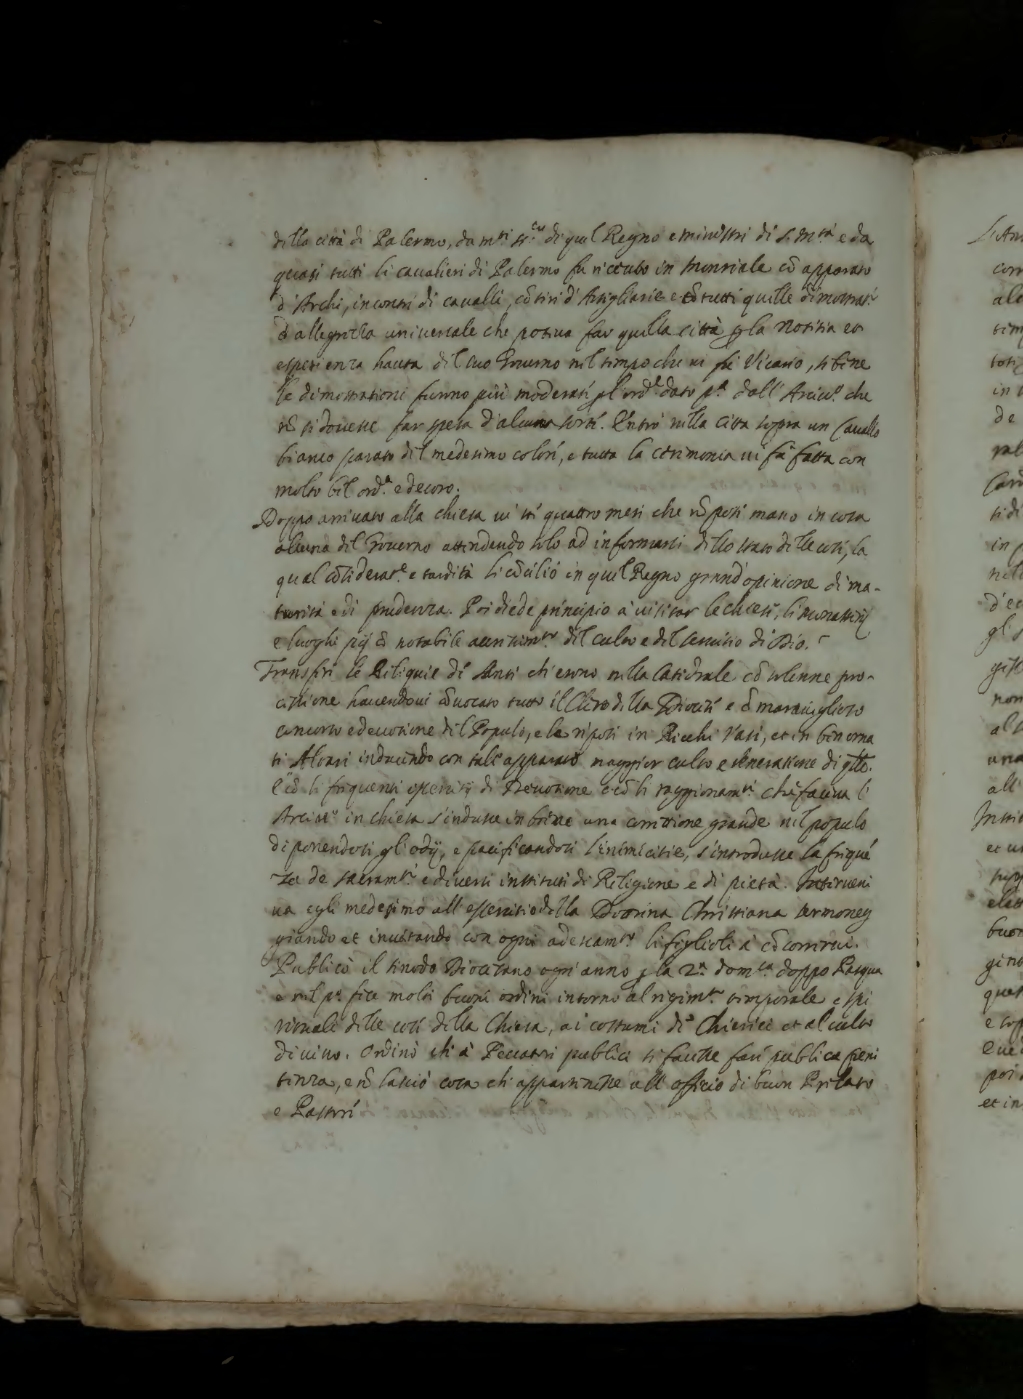 della città di Palermo, da m.ti sr.ri di quel Regno e ministri di S. M.tà e da
quasi tutti li cavalieri di Palermo fu ricevuto in Monriale cō apparato
d'Archi, incontri di cavalli, cō tiri d'Artigliarie e cō tutti quelle dimostrat.i
d'allegrezza universale che poteva far quella città p la notitia et
esperienza hauta del suo Governo nel tempo che vi fù Vicario, se bene
le dimostrationi furno più moderati pl ord.e dato p.a dall'Arciv.o che
nō si dovesse far spesa d'alcuna sorti. Entrò nella città sopra un Cavallo
bianco parato del medesimo colori, e tutta la cerimonia vi fù fatta con
molto bel ord.e e decoro.
Doppo arrivato alla chiesa vi stì quattro mesi che nō posi mano in cosa
alcuna del Governo attendendo solo ad informarsi dello stato delle cosi, la
qual cōsiderat.e e tardità li cōciliò in quel Regno grand'opinione di ma-
turità e di prudenza. Poi diede principio à visitar le chiesi, li monasterij
e luoghi pij cō notabile accrescim.to del culto e del servitio di Dio.
Transferì le Reliquie di Santi chi erono nella Catidrale cō solenne pro-
cissione havendovi cōvocato tutto il Clero della Diocesi e cō maraviglioso
concorso e devotione del Populo, e le riposi in Ricchi Vasi, et in ben orna
ti Altari inducendo con tale apparato maggior culto e veneratione di q.lle.
E cō li frequenti esercitij di Devotione e cō li raggionam.ti che faceva l'
Arciv.o in chiesa s'indusse in brive una correttione grande nel populo
diponendosi gl'odij, e pacificandosi l'inimicitie, s'introdusse la friqué
za de sacram.ti e diversi instituti di Religione e di pietà. Interveni
va egli medesimo all'essercitio della Dottrina Christiana sermoneg
giando et invitando con ogni adescam.to li figlioli à cōcorrervi.
Publicò il sinodo Diocesano ogni anno p la 2.a dom.ca doppo Pasqua
e nel p.o fice molti buoni ordini intorno al regim.to temporale e spi
rituale delle cosi della Chiesa, ai costumi di Chierici et al culto
divino. Ordinò chi à Peccatori publici si facesse fari publica peni
tinza, e nō lasciò cosa chi appartinesse all'officio di buon Prelato
e Pastori